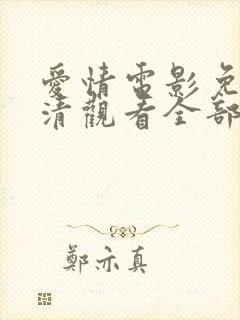 愛情電影免
清觀看全部
鄭亦真